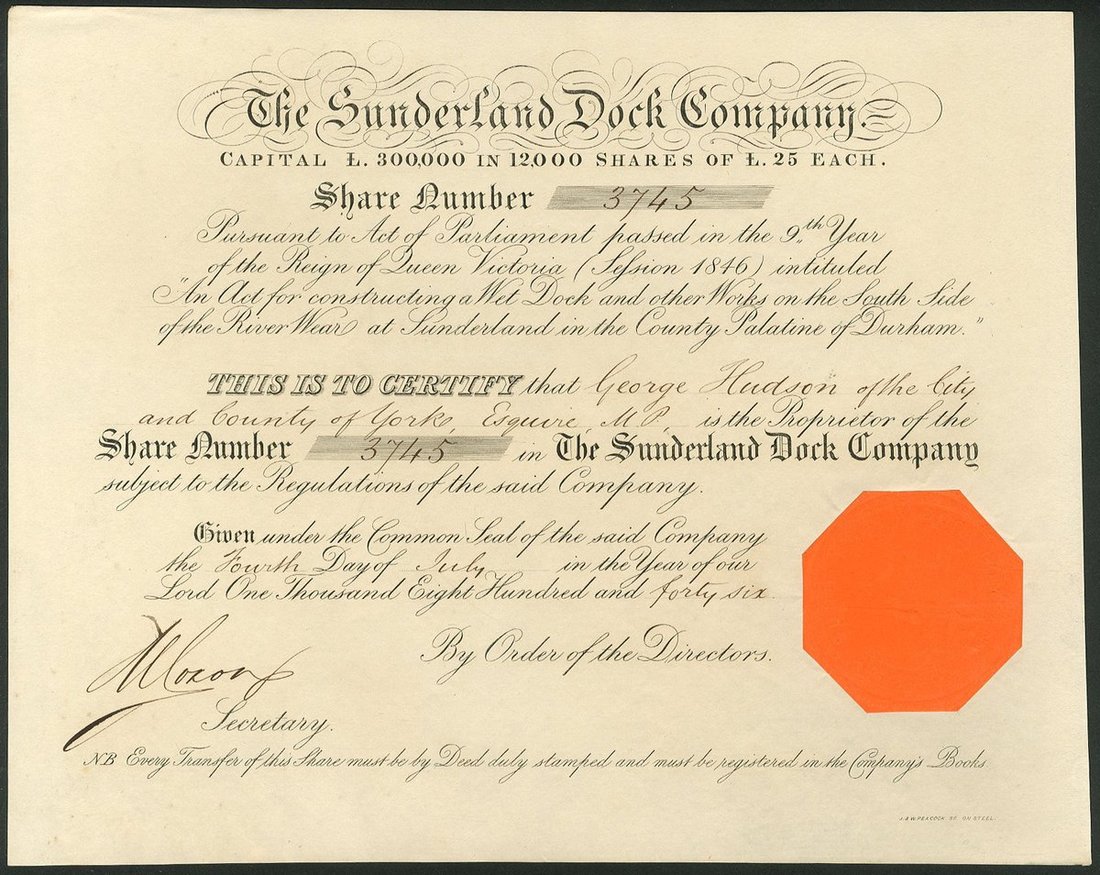 The Sunderland Dock Company.
CAPITAL Ł. 300,000 IN 12,000 SHARES OF Ł. 25 EACH.
Share Number 3745
Pursuant to Act of Parliament passed in the 9.th Year
of the Reign of Queen Victoria (Session 1846) intituled
"An Act for constructing a Wet Dock and other Works on the South Side
of the River Wear at Sunderland in the County Palatine of Durham."
THIS IS TO CERTIFY that George Hudson of the City
and County of York, Esquire, M.P. is the Proprietor of the
Share Number 3745 in The Sunderland Dock Company
subject to the Regulations of the said Company.
Given under the Common Seal of the said Company
the Fourth Day of July in the Year of our
Lord One Thousand Eight Hundred and forty six.
By Order of the Directors.
Secretary.
NB Every Transfer of this Share must be by Deed duly stamped and must be registered in the Company's Books
J. & W. PEACOCK ON STEEL.